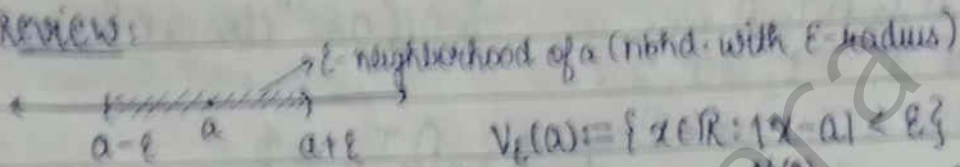 Review:
ε-neighborhood of a (nbhd. with ε-radius)
a-ε a a+ε V_ε(a):= { x∈ℝ : |x-a| < ε }